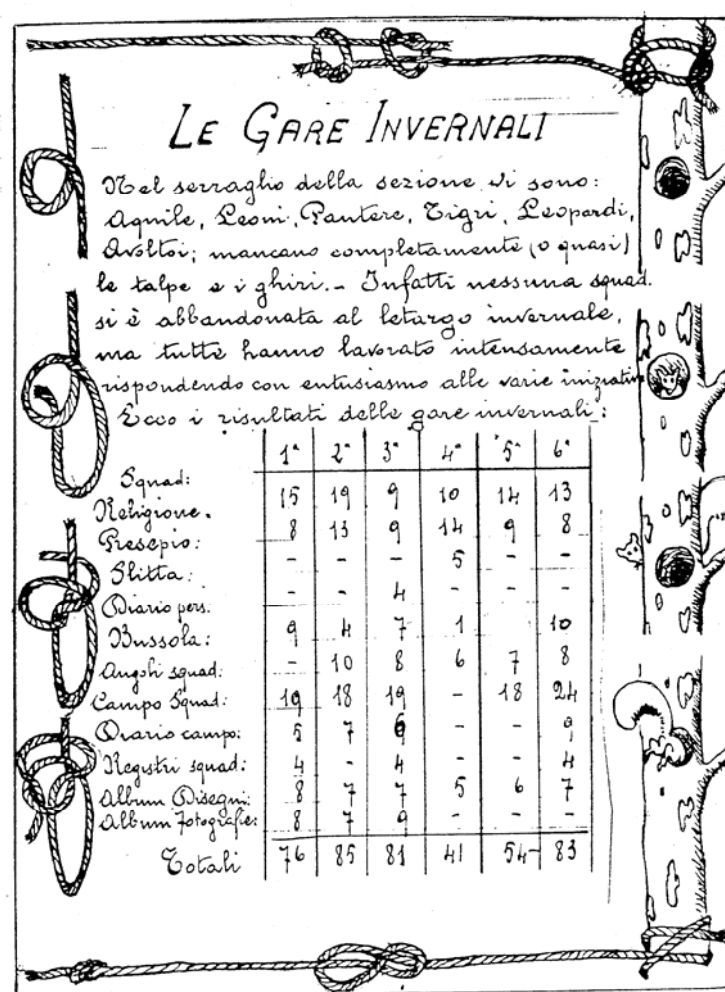 LE GARE INVERNALI
Nel serraglio della sezione vi sono:
Aquile, Leoni, Pantere, Tigri, Leopardi,
Avoltoi; mancano completamente (o quasi)
le talpe e i ghiri. - Infatti nessuna squad.
si è abbandonata al letargo invernale,
ma tutte hanno lavorato intensamente
rispondendo con entusiasmo alle varie iniziative
Ecco i risultati delle gare invernali:
Squad: 1ª 2ª 3ª 4ª 5ª 6ª
Religione. 15 19 9 10 14 13
Presepio: 8 13 9 14 9 8
Slitta: - - - 5 - -
Diario pers. - - 4 - - -
Bussola: 9 4 7 1 10
Angoli squad: - 10 8 6 7 8
Campo Squad: 19 18 19 - 18 24
Diario campo: 5 7 - - 9
Registri squad: 4 - 4 - - 4
Album Disegni: 8 7 7 5 6 7
Album Fotografie: 8 7 9 - - -
Totali 76 85 81 41 54 83